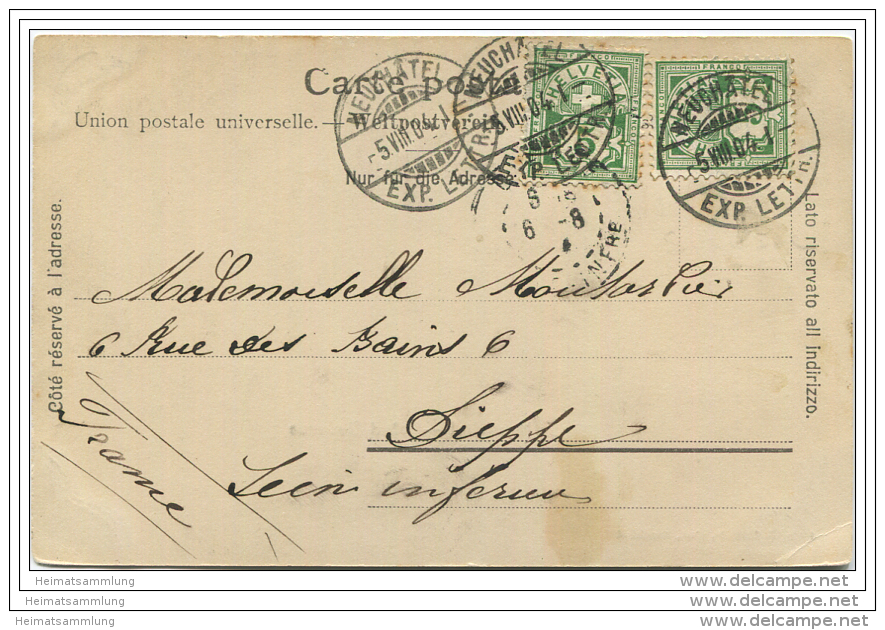 Carte postale
Union postale universelle. — Weltpostverein
Nur für die Adresse
Côté réservé à l'adresse.
Lato riservato all indirizzo.
NEUCHÂTEL
-5.VIII.04.-1
EXP. LETTR.
NEUCHÂTEL
5.VIII.04.-1
HELVETIA
FRANCO
NEUCHÂTEL
-5.VIII.04.-1
EXP. LETTR.
6 -8
Mademoiselle
6 Rue des Bains 6
Dieppe
Seine inférieure
France
Heimatsammlung
Heimatsammlung
Heimatsammlung
www.delcampe.net
www.delcampe.net
www.delcampe.net